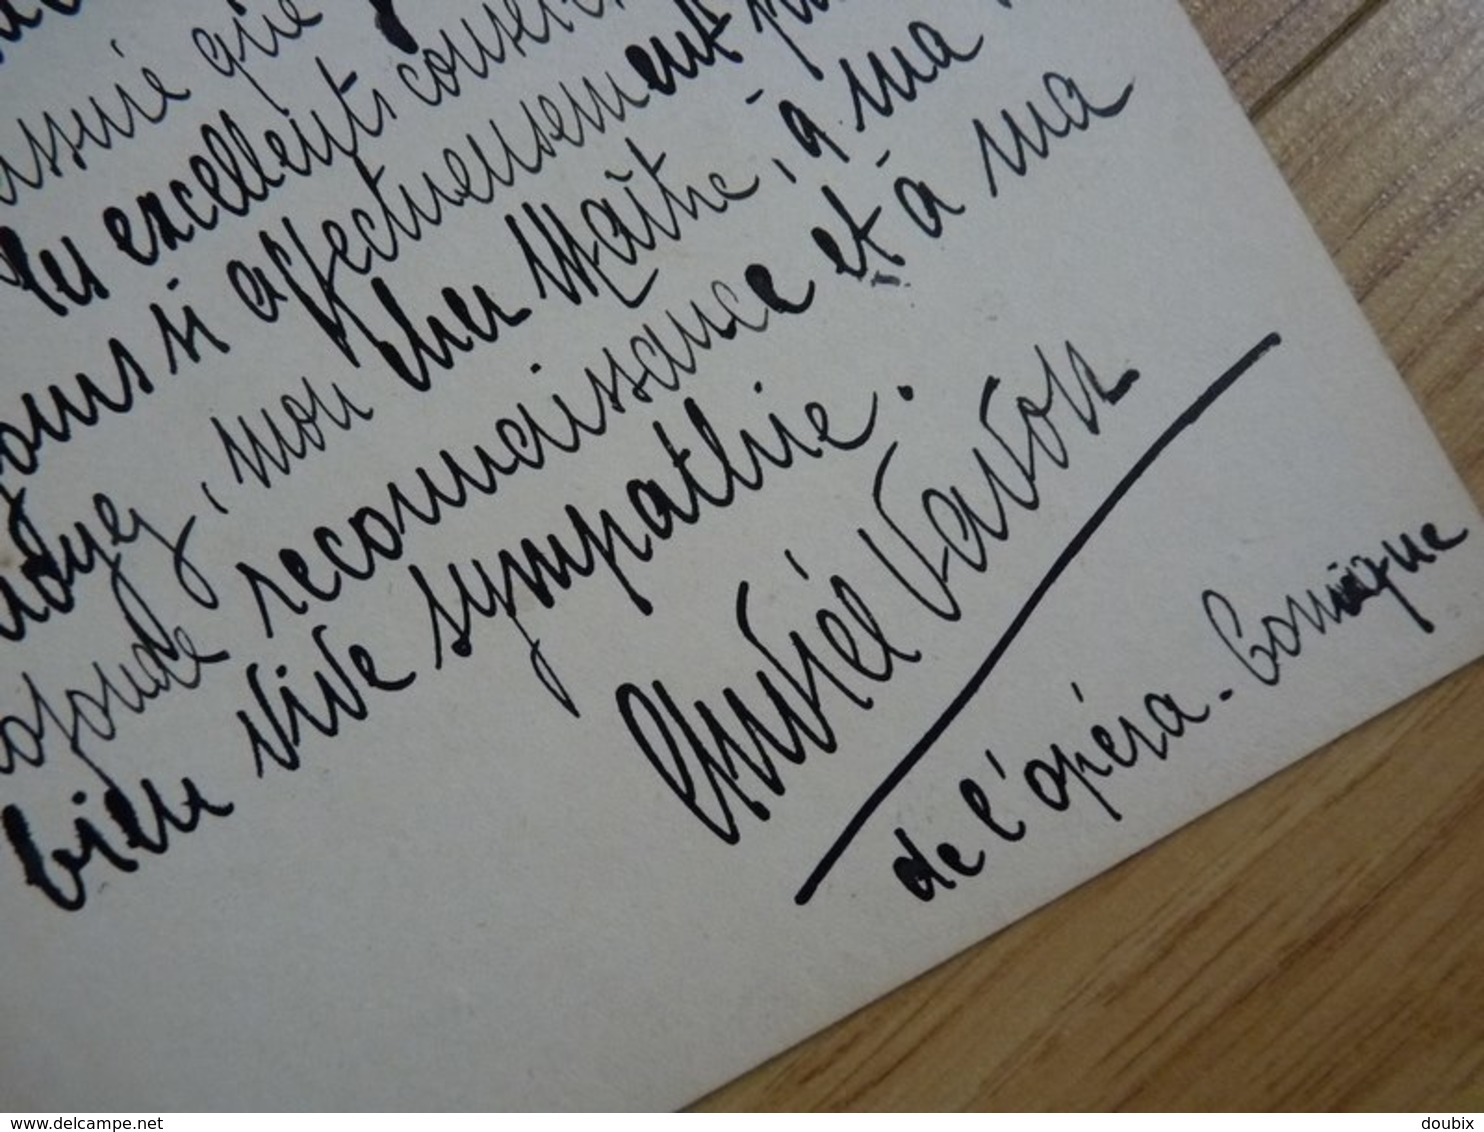 assuré que
les excellents conseils
toujours si affectueusement
croyez, mon cher Maître, à ma
profonde reconnaissance et à ma
bien vive sympathie.
de l'opéra-Comique
delcampe.net
doubix